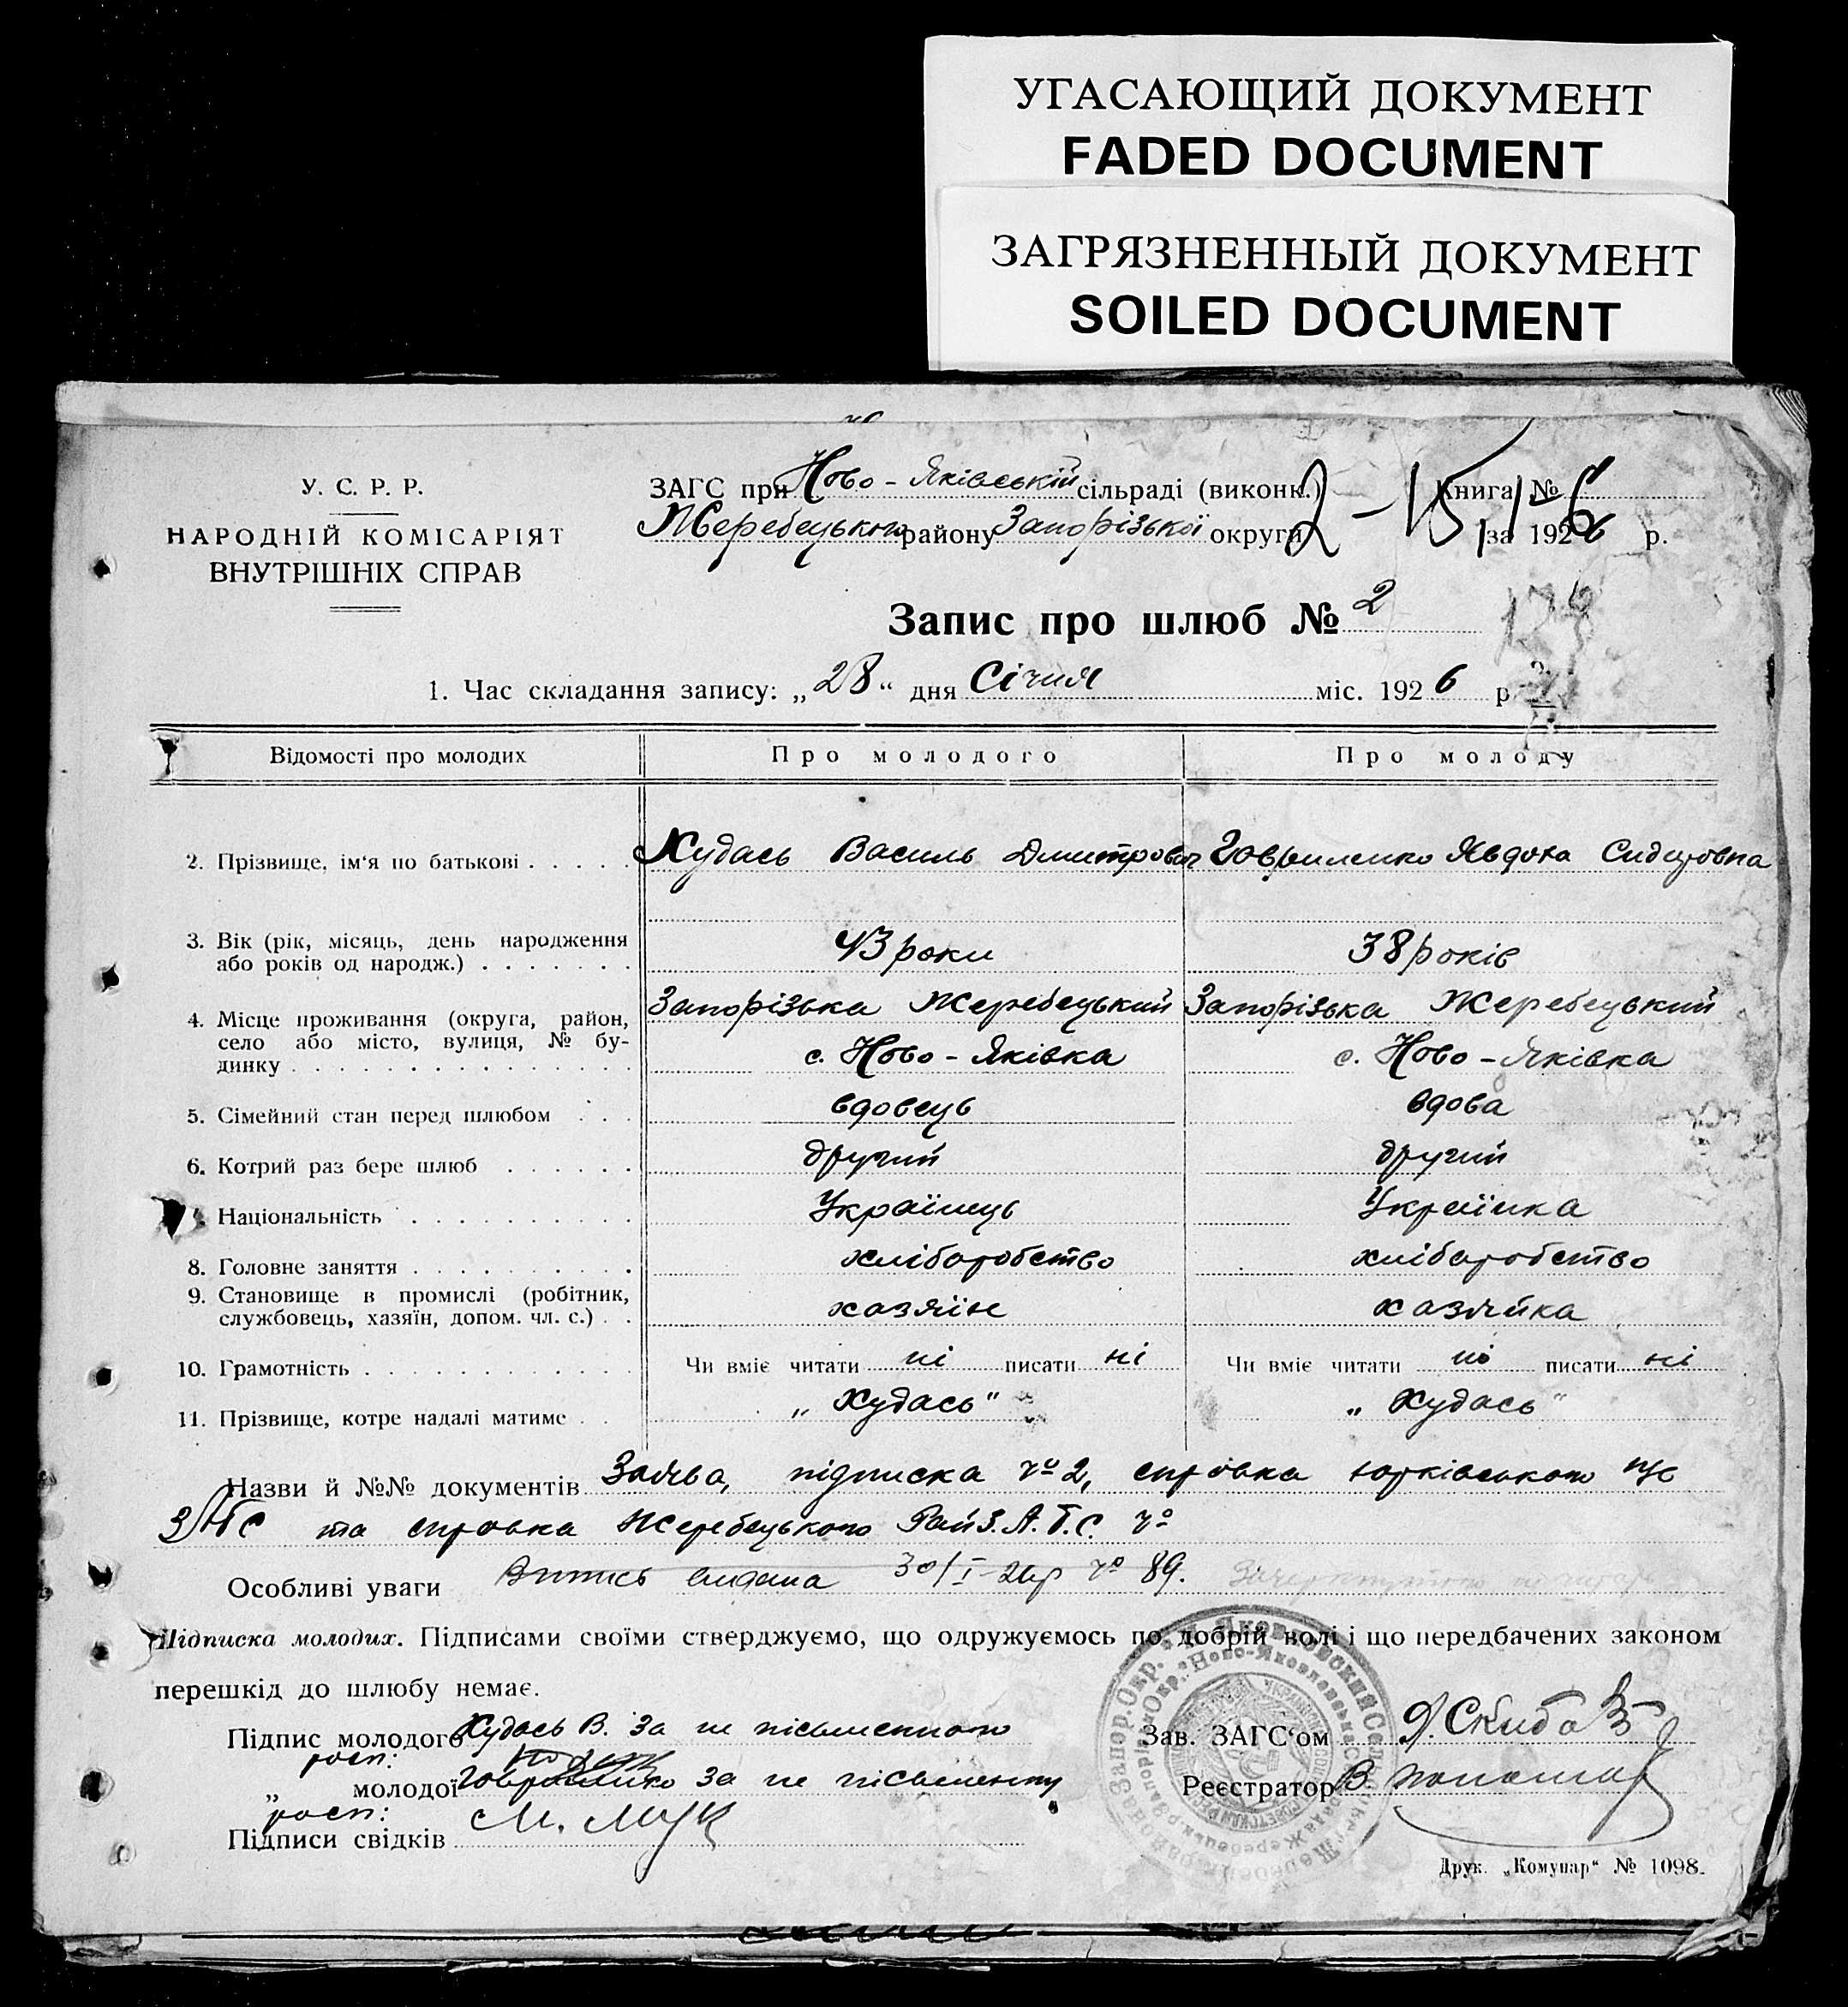 УГАСАЮЩИЙ ДОКУМЕНТ
FADED DOCUMENT
ЗАГРЯЗНЕННЫЙ ДОКУМЕНТ
SOILED DOCUMENT
У. С. Р. Р.
НАРОДНІЙ КОМІСАРІЯТ
ВНУТРІШНІХ СПРАВ
ЗАГС при Ново-Яківській сільраді (виконк.) Книга №
Жеребецького району Запорізької округи за 1926 р.
Запис про шлюб № 2
1. Час складання запису: „28“ дня Січня міс. 1926 р.
Відомості про молодих Про молодого Про молоду
2. Прізвище, ім'я по батькові Кудась Василь Дмитрович Говриленко Явдоха Сидоровна
3. Вік (рік, місяць, день народження
або років од народж.) 43 роки 38 років
4. Місце проживання (округа, район, Запорізька Жеребецький Запорізька Жеребецький
село або місто, вулиця, № бу- с. Ново-Яківка с. Ново-Яківка
динку
5. Сімейний стан перед шлюбом вдовець вдова
6. Котрий раз бере шлюб другий другий
Національність Українець Українка
8. Головне заняття хліборобство хліборобство
9. Становище в промислі (робітник,
службовець, хазяїн, допом. чл. с.) хазяїн хазяйка
10. Грамотність Чи вміє читати ні писати ні Чи вміє читати ні писати ні
11. Прізвище, котре надалі матиме „Кудась" „Кудась"
Назви й №№ документів Заява, підписка № 2, справка юрківського
ЗАГС та справка Жеребецького Рай З.А.Г.С. №
Особливі уваги Витись видана 30/I-26р № 89.
Підписка молодих. Підписами своїми стверджуємо, що одружуємось по добрій волі і що передбачених законом
перешкід до шлюбу немає.
Підпис молодого Кудась В. За не письменного
росп:
„ молодої Говриленко За не письменну
росп:
Підписи свідків М. Мук
Зав. ЗАГС‘ом Я. Скиба
Реєстратор В.
Друк. „Комунар“ № 1098.